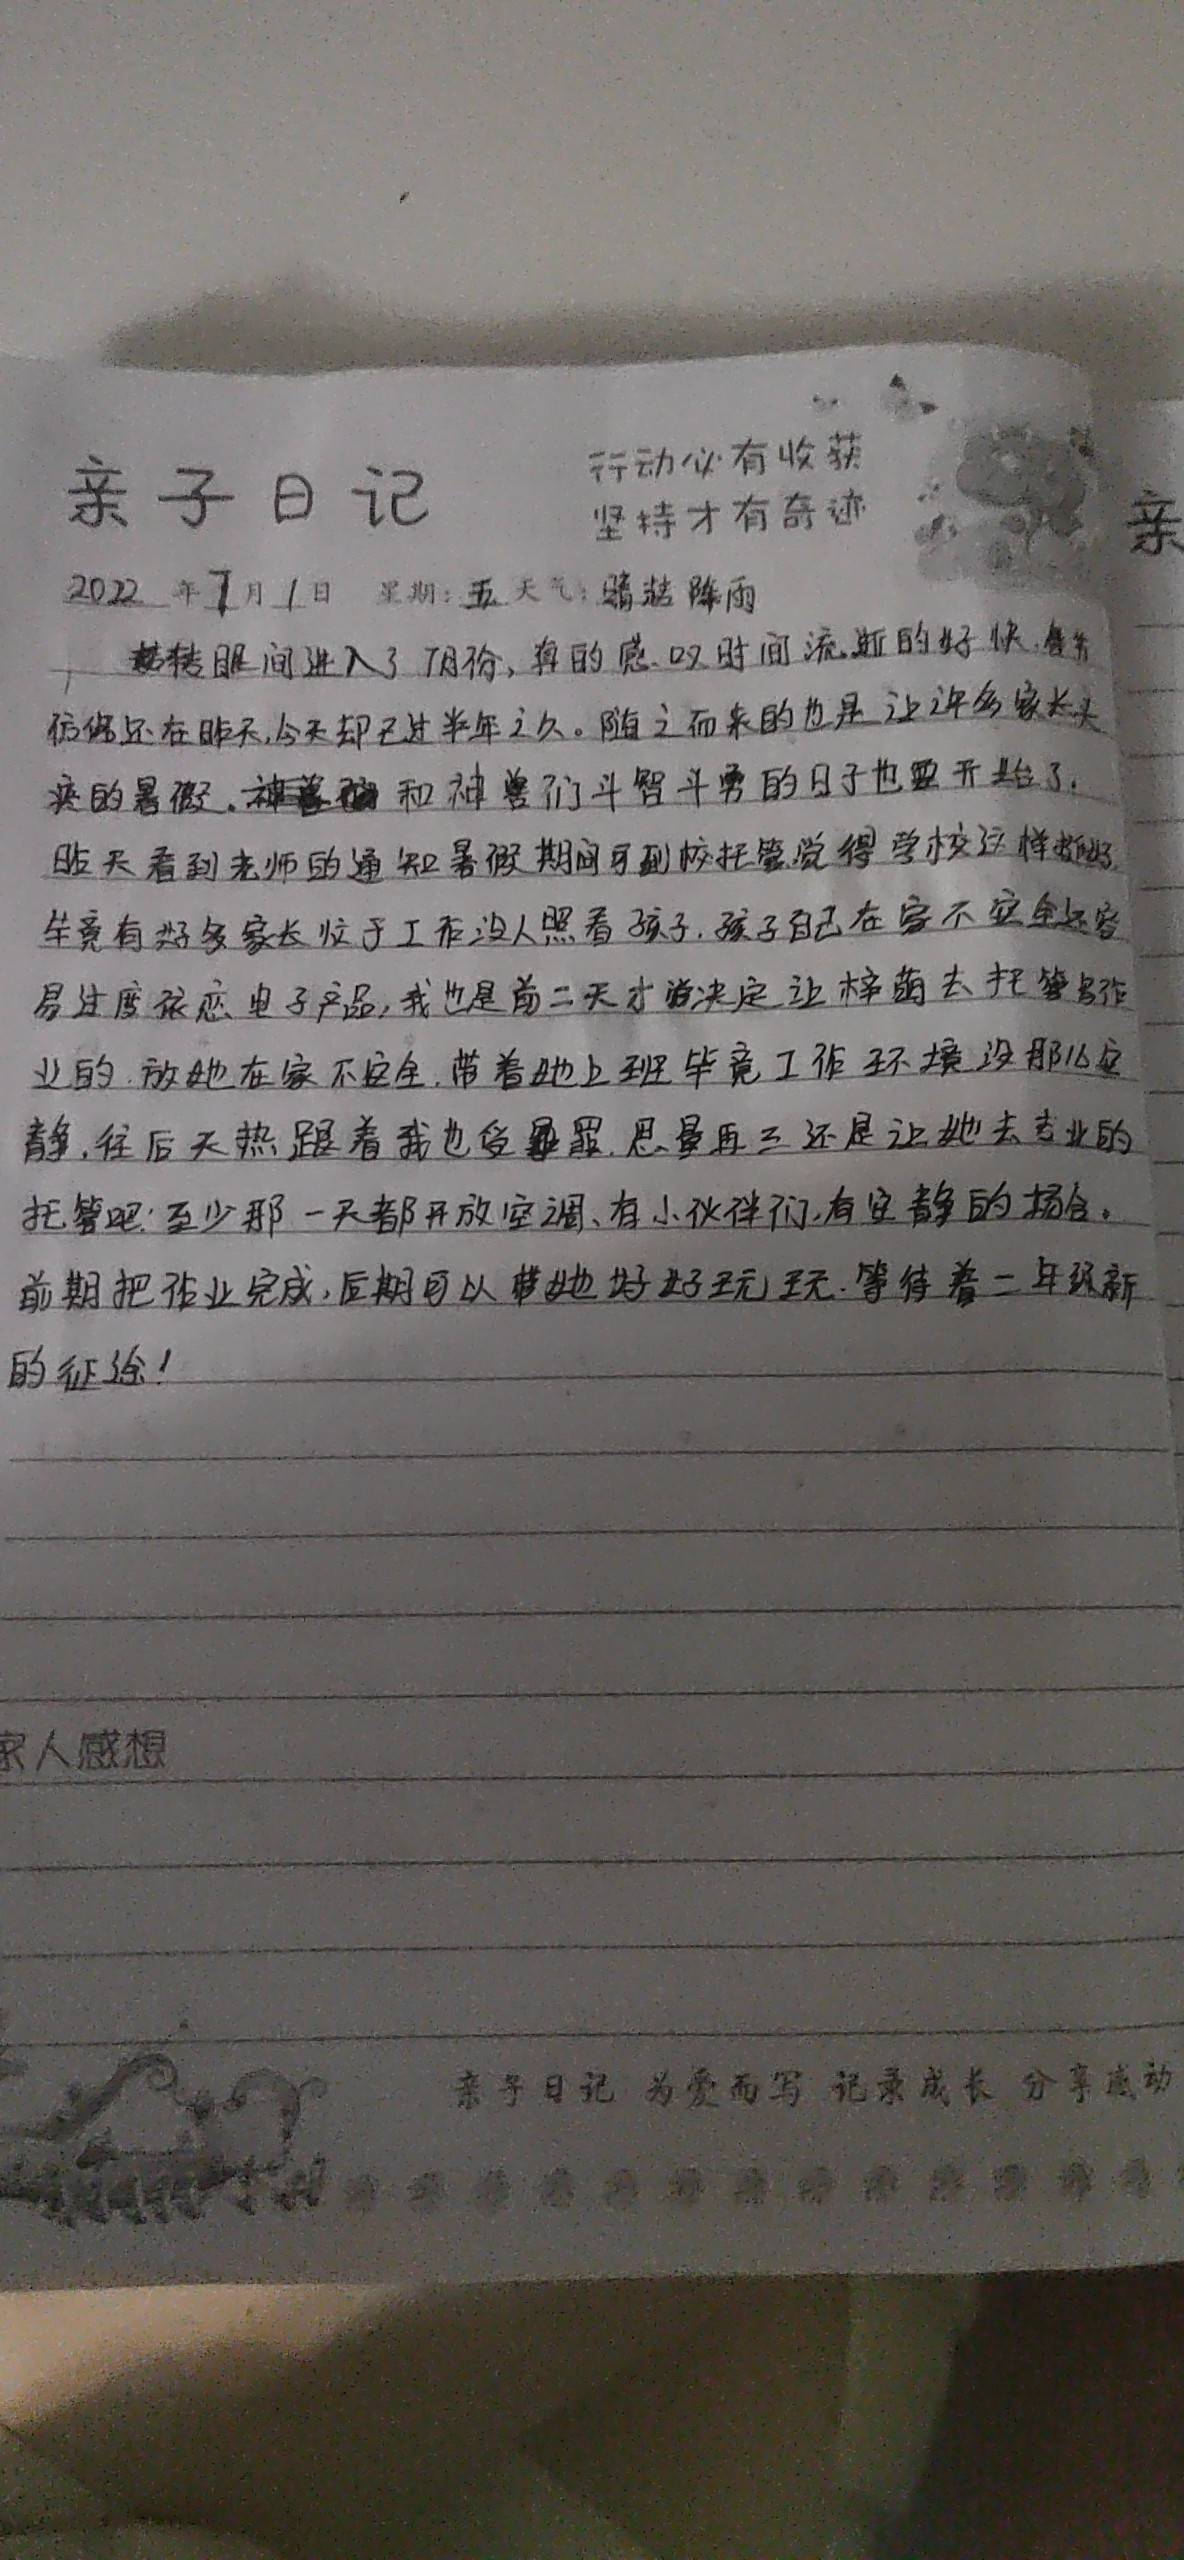 亲子日记
行动必有收获
坚持才有奇迹
亲
2022 年 7 月 1 日 星期: 五 天气: 晴转阵雨
转眼间进入了7月份,真的感叹时间流逝的好快,
仿佛还在昨天,今天却已过半年之久。随之而来的也是让许多家长头
疼的暑假。和神兽们斗智斗勇的日子也要开始了.
昨天看到老师的通知暑假期间可到校托管,觉得学校这样挺好,
毕竟有好多家长忙于工作没人照看孩子.孩子自己在家不安全还容
易过度依恋电子产品,我也是前二天才决定让梓菡去托管写作
业的.放她在家不安全.带着她上班毕竟工作环境没那么安
静,往后天热跟着我也受罪.思量再三还是让她去专业的
托管吧.至少那一天都开放空调、有小伙伴们,有安静的场合。
前期把作业完成,后期可以带她好好玩玩.等待着二年级新
的征途!
家人感想
亲子日记 为爱而写 记录成长 分享感动